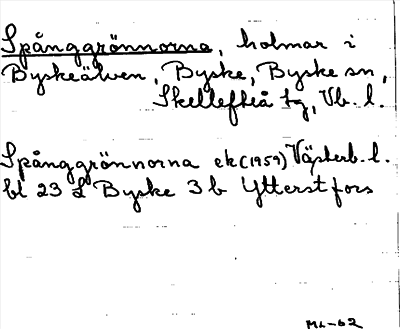 Spånggrönnorna, holmar i
Byskeälven, Byske, Byske sn,
Skellefteå tg, Vb. l.
Spånggrönnorna ek (1959) Västerb. l.
bl 23 L Byske 3 b Ytterstfors
ML-62